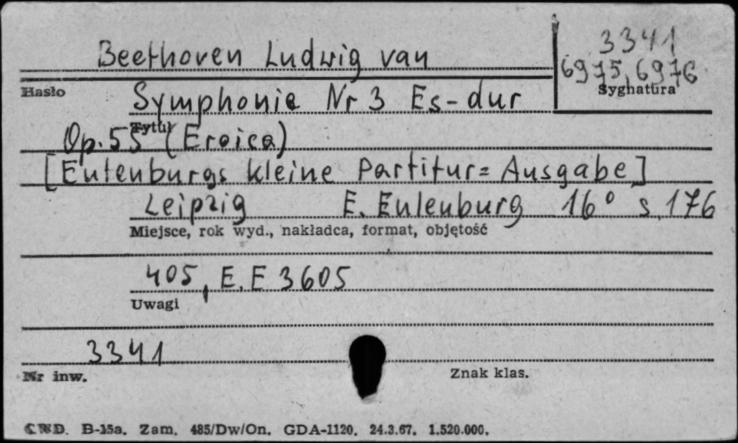 3341
Beethoven Ludwig van
6975, 6976
Hasło
Sygnatura
Symphonie Nr 3 Es-dur
Tytuł
Op. 55 (Eroica)
[Eulenburgs kleine Partitur= Ausgabe]
Leipzig E. Eulenburg 16° s. 176
Miejsce, rok wyd., nakładca, format, objętość
405, E.E 3605
Uwagi
3341
Nr inw.
Znak klas.
CWD. B-15a. Zam. 485/Dw/On. GDA-1120. 24.3.67. 1.520.000.